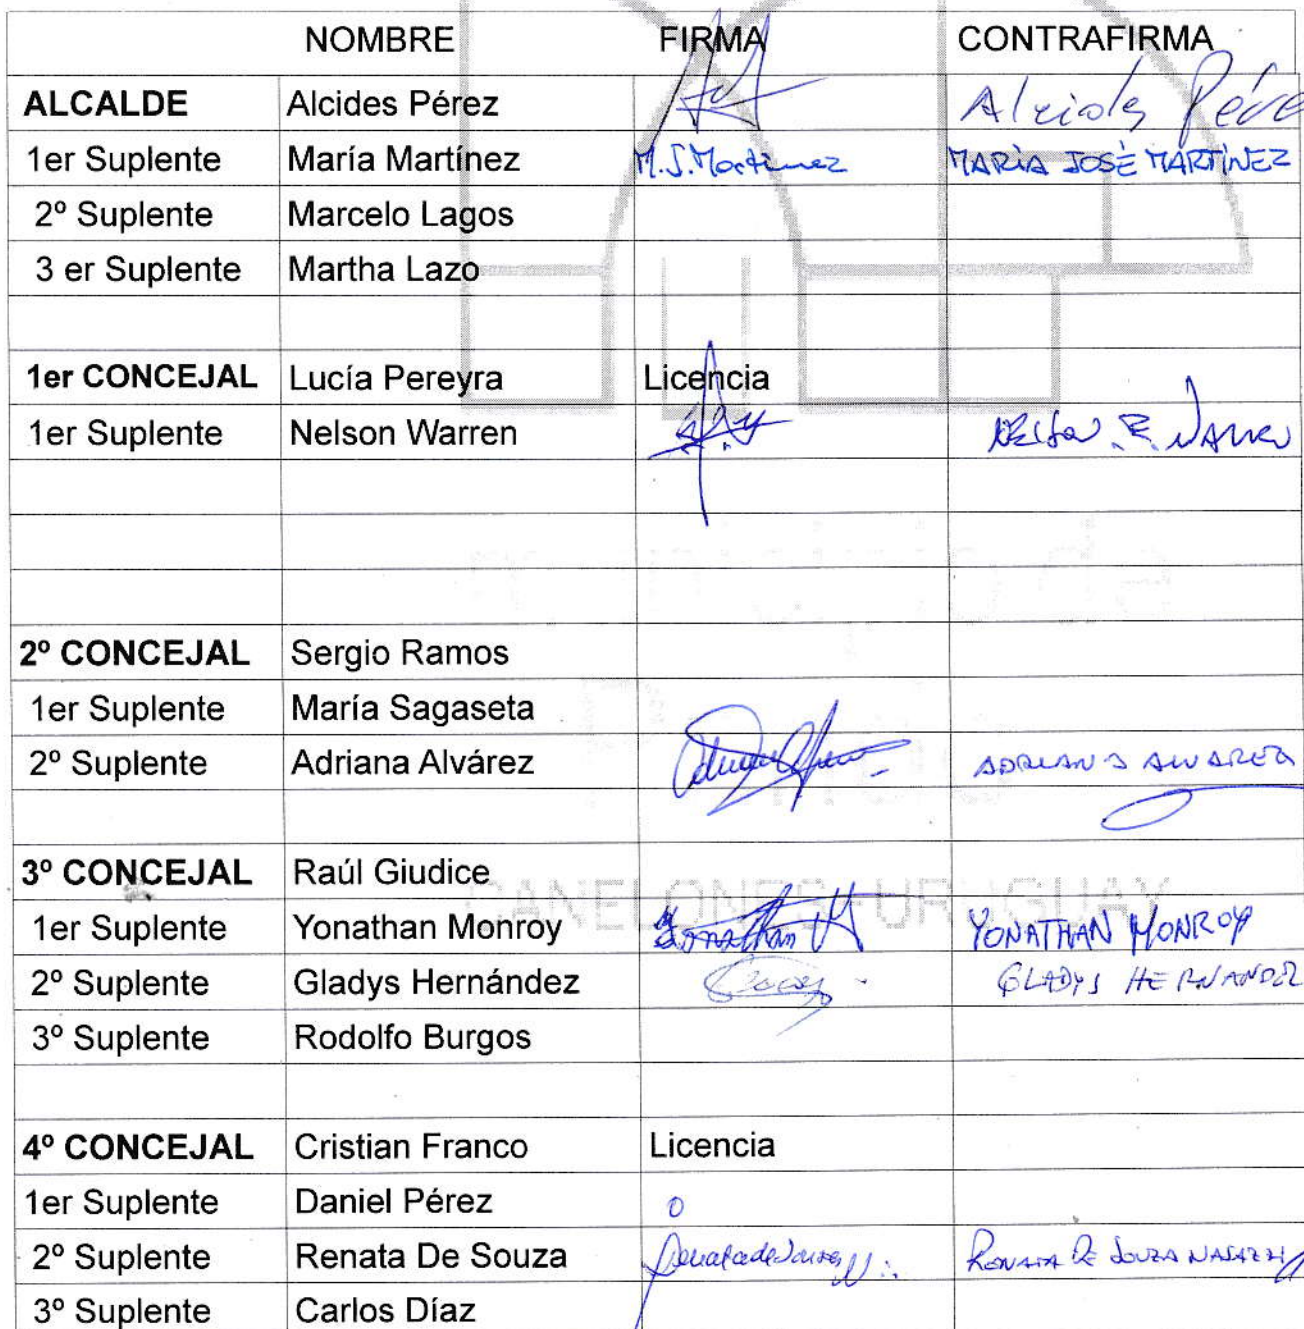 NOMBRE FIRMA CONTRAFIRMA
ALCALDE Alcides Pérez Alcides Pérez
1er Suplente María Martínez M.J. Martinez MARÍA JOSÉ MARTÍNEZ
2º Suplente Marcelo Lagos
3 er Suplente Martha Lazo
1er CONCEJAL Lucía Pereyra Licencia
1er Suplente Nelson Warren Nelson E. Warren
2º CONCEJAL Sergio Ramos
1er Suplente María Sagaseta
2º Suplente Adriana Alvárez ADRIANA ALVAREZ
3º CONCEJAL Raúl Giudice
CANELONES-URUGUAY
1er Suplente Yonathan Monroy Yonathan M YONATHAN MONROY
2º Suplente Gladys Hernández GLADYS HERNANDEZ
3º Suplente Rodolfo Burgos
4º CONCEJAL Cristian Franco Licencia
1er Suplente Daniel Pérez
2º Suplente Renata De Souza Renata de Souza RENATA DE SOUZA NASAZZI
3º Suplente Carlos Díaz